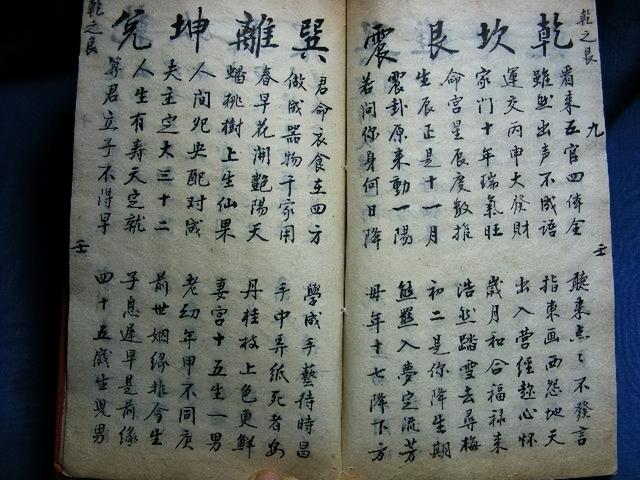 乾之艮
九
壬
乾坎艮震
看來五官四俸全
聽來点々不發言
雖然出声不成語
指東画西怨地天
運交丙申大發財
出入营經趂心怀
家门十年瑞氣旺
歲月和合福禄来
命宫星辰度数推
浩然踏雪去尋梅
生辰正是十一月
初二是你降生期
震卦原来動一陽
熊羆入夢定流芳
若问你身何日降
毋年十七降下方
巽離坤兌
君命衣食在四方
學成手藝待時昌
做成器物千家用
手中弄纸死者安
春早花開艷陽天
丹桂枝上色更鮮
蟠桃樹上生仙果
妻宫十五生一男
人间夗央配对成
老幼年甲不同庚
夫主定大三十二
前世姻缘非今生
人生有寿天定就
子息遲早是前缘
算君立子不得早
四十五歲生児男
乾之艮
壬